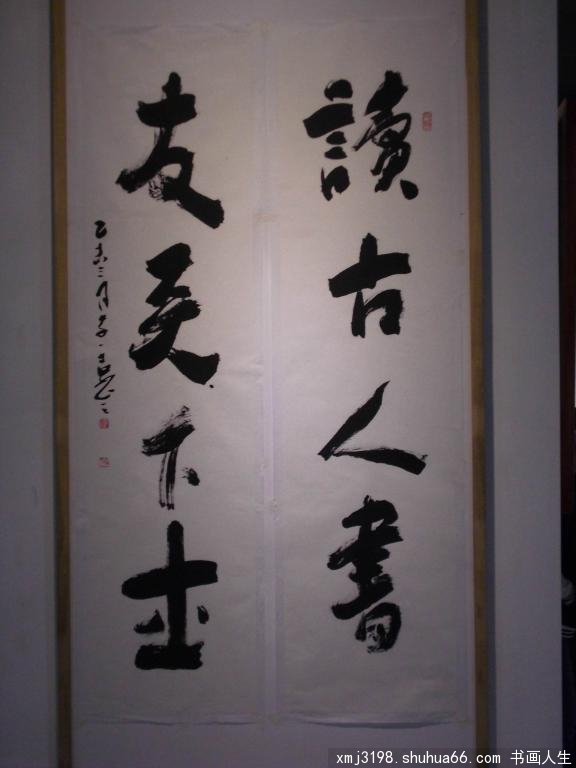 讀古人書
友天下士
三月
xmj3198.shuhua66.com 书画人生